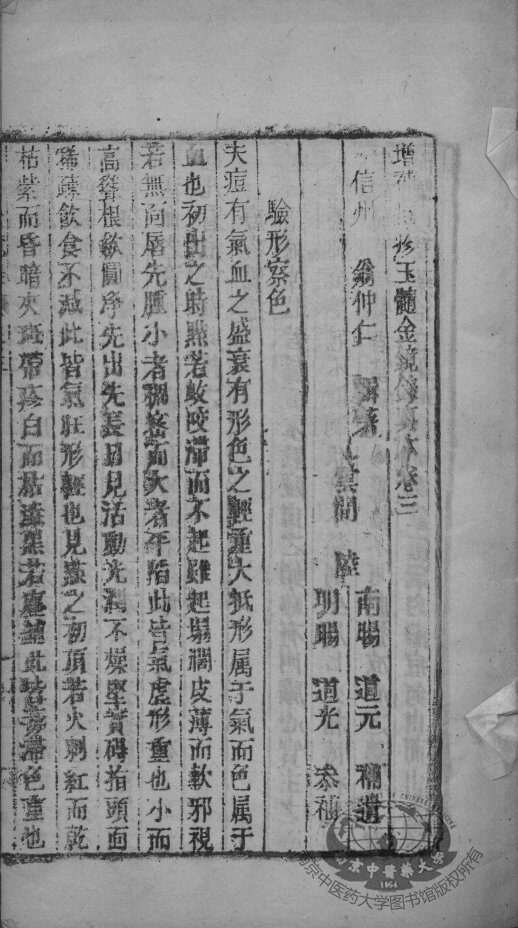 增補痘疹玉髓金鏡錄真本卷三
信州 翁仲仁 南暘 道元 補遺
明暘 道光 叅補
驗形察色
夫痘有氣血之盛衰有形色之輕重大抵形属于氣而色属于
血也初出之時㸃若蚊咬滯而不起雖起塌濶皮薄而軟邪視
若無向唇先腫小者稠密而大者平陷此皆氣虛形重也小而
高聳根窠圓净先出先長日見活動光潤不燥堅實碍指頭面
稀疎飲食不减此皆氣旺形輕也見點之初頂若火刺紅而乾
枯紫而昏暗夾斑帶疹白而枯澁黑若塵鋪此皆瘀滯色重也
南京中醫藥大學
1954
南京中医药大学图书馆版权所有